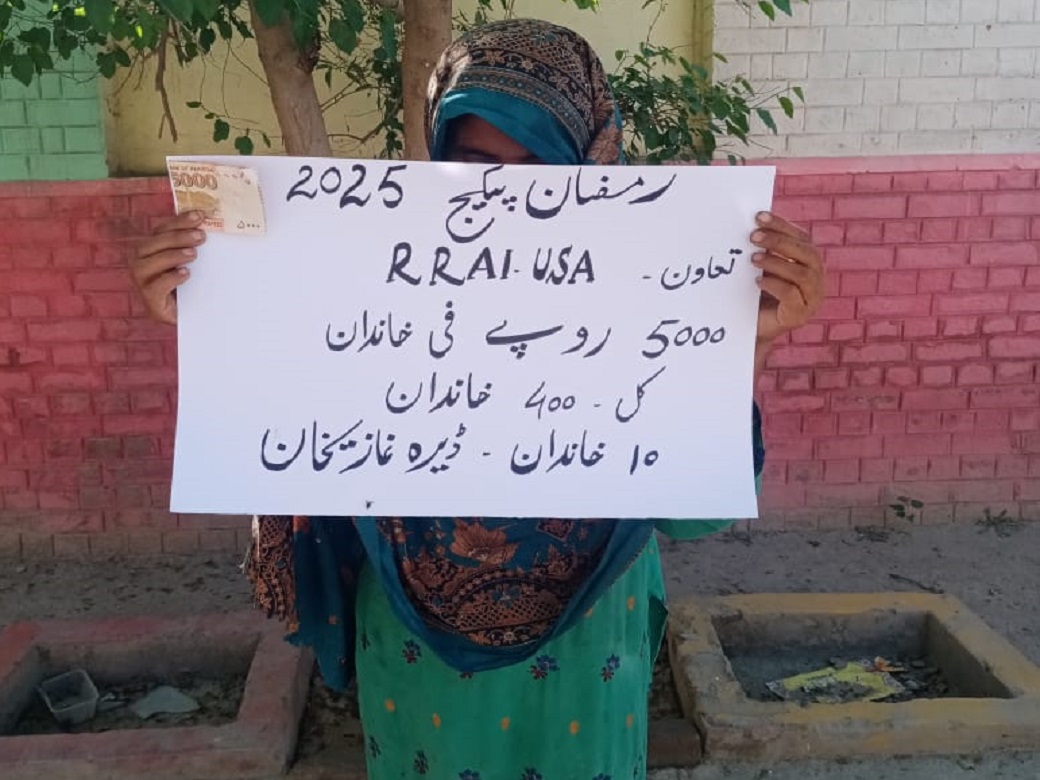 رمضان پیکیج 2025
تعاون - RRAI-USA
5000 روپے فی خاندان
کل - 400 خاندان
10 خاندان - ڈیرہ غازیخان
5000
۵۰۰۰